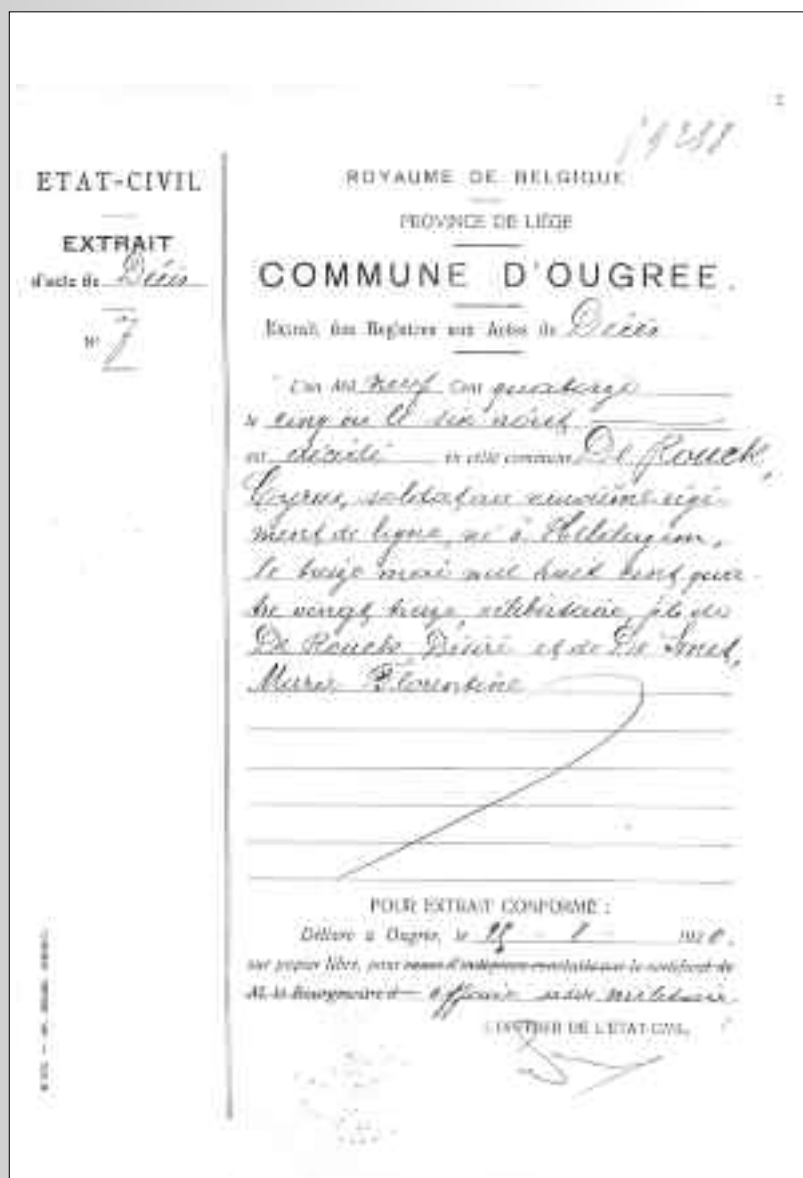 ETAT-CIVIL
EXTRAIT
d'acte de Décès
N° 7
ROYAUME DE BELGIQUE
PROVINCE DE LIÉGE
COMMUNE D'OUGREE.
Extrait des Registres aux Actes de Décès
L'an dix neuf cent quatorze
le cinq ou le six août
est décédé en cette commune De Rouck,
Cyrus, soldat au neuvième régi-
ment de ligne, né à
le treize mai mil huit cent qua-
tre vingt treize, célibataire, fils de
De Rouck Désiré et de De Smet,
Marie Florentine
POUR EXTRAIT CONFORME :
Délivré à Ougrée, le
sur papier libre, pour le certificat de
M. le Bourgmestre d affaire militaire
L'OFFICIER DE L'ETAT-CIVIL,